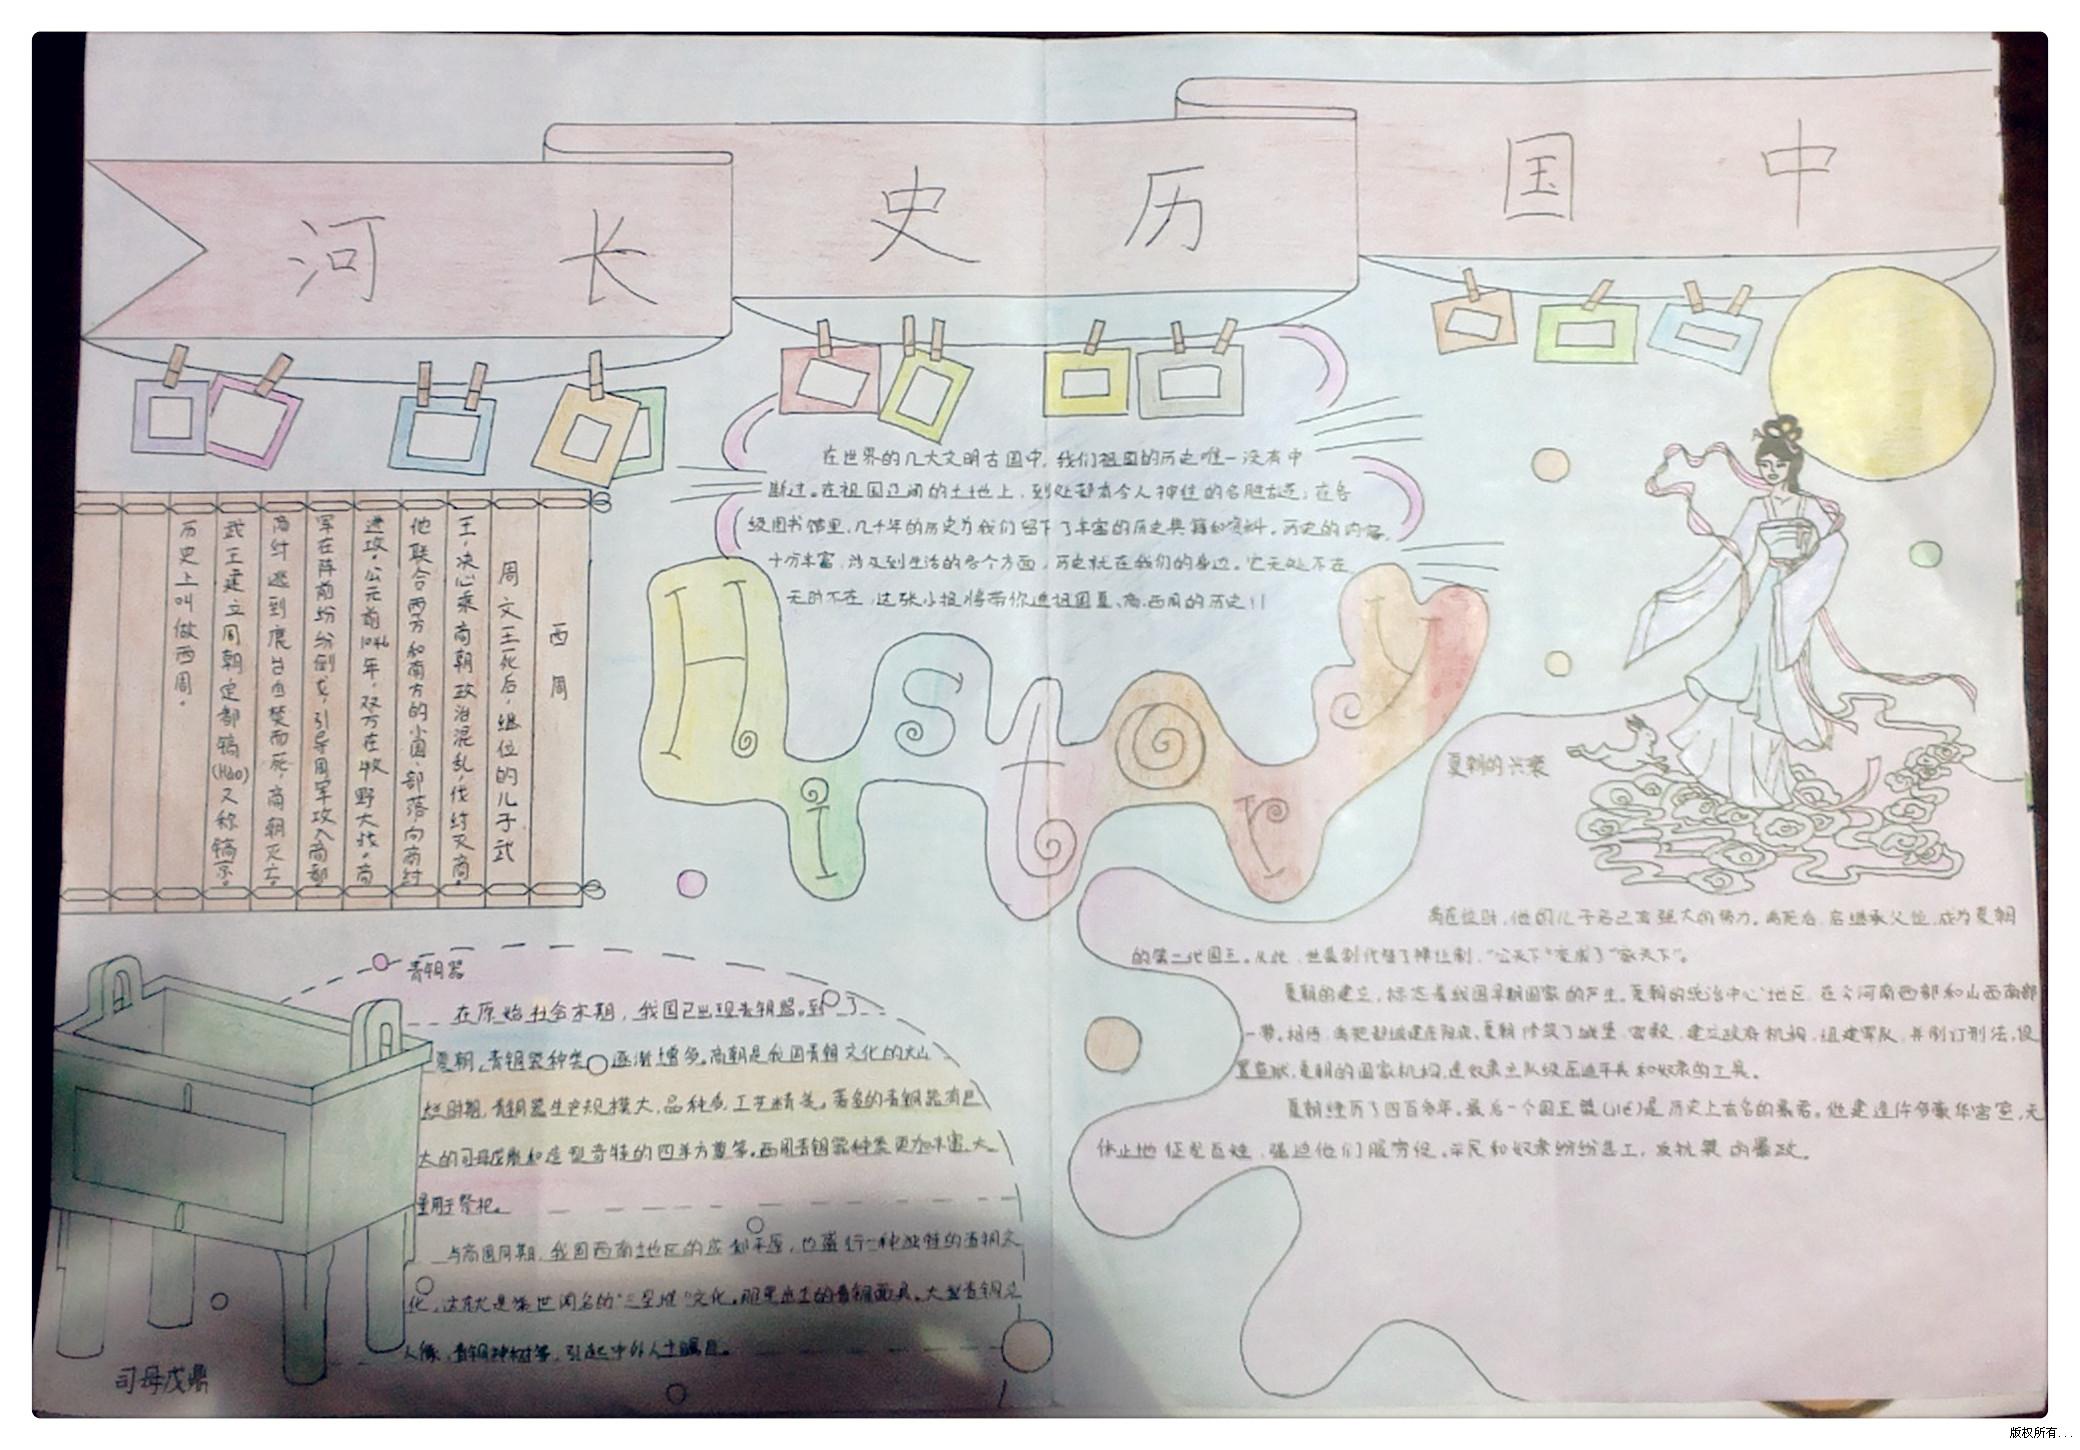 中国历史长河
在世界的几大文明古国中，我们祖国的历史唯一没有中
断过。在祖国辽阔的土地上，到处都有令人神往的名胜古迹；在各
级图书馆里，几千年的历史为我们留下了丰富的历史典籍和资料。历史的内容，
十分丰富，涉及到生活的各个方面，历史就在我们的身边。它无处不在
无时不在，这张小报将带你进祖国夏、商、西周的历史！！
History
西周
周文王死后，继位的儿子武
王，决心乘商朝政治混乱，伐纣灭商。
他联合西方和南方的小国、部落向商纣
进攻。公元前1046年，双方在牧野大战。商
军在阵前纷纷倒戈，引导周军攻入商都
商纣逃到鹿台自焚而死，商朝灭亡。
武王建立周朝定都镐(Hào)又称镐京。
历史上叫做西周。
夏朝的兴衰
禹在位时，他的儿子启已有强大的势力。禹死后，启继承父位，成为夏朝
的第二代国王。从此，世袭制代替了禅让制，“公天下”变成了“家天下”。
夏朝的建立，标志着我国早期国家的产生。夏朝的统治中心地区，在今河南西部和山西南部
一带。相传，禹把都城建在阳城。夏朝修筑了城堡、宫殿，建立政府机构，组建军队，并制订刑法，设
置监狱。夏朝的国家机构，是奴隶主队级压迫平民和奴隶的工具。
夏朝经历了四百多年。最后一个国王桀(jié)是历史上有名的暴君。他建造许多豪华宫室，无
休止地征发百姓，强迫他们服劳役。平民和奴隶纷纷怠工，反抗桀的暴政。
青铜器
在原始社会末期，我国已出现青铜器。到了
夏朝，青铜器种类逐渐增多。商朝是我国青铜文化的灿
烂时期，青铜器生产规模大，品种多，工艺精美。著名的青铜器有巨
大的司母戊鼎和造型奇特的四羊方尊等。西周青铜器种类更加丰富，大
量用于祭祀。
与商周同期，我国西南地区的成都平原，也盛行一种独特的青铜文
化，这就是举世闻名的“三星堆”文化。那里出土的青铜面具、大型青铜立
人像、青铜神树等，引起中外人士瞩目。
司母戊鼎
版权所有...